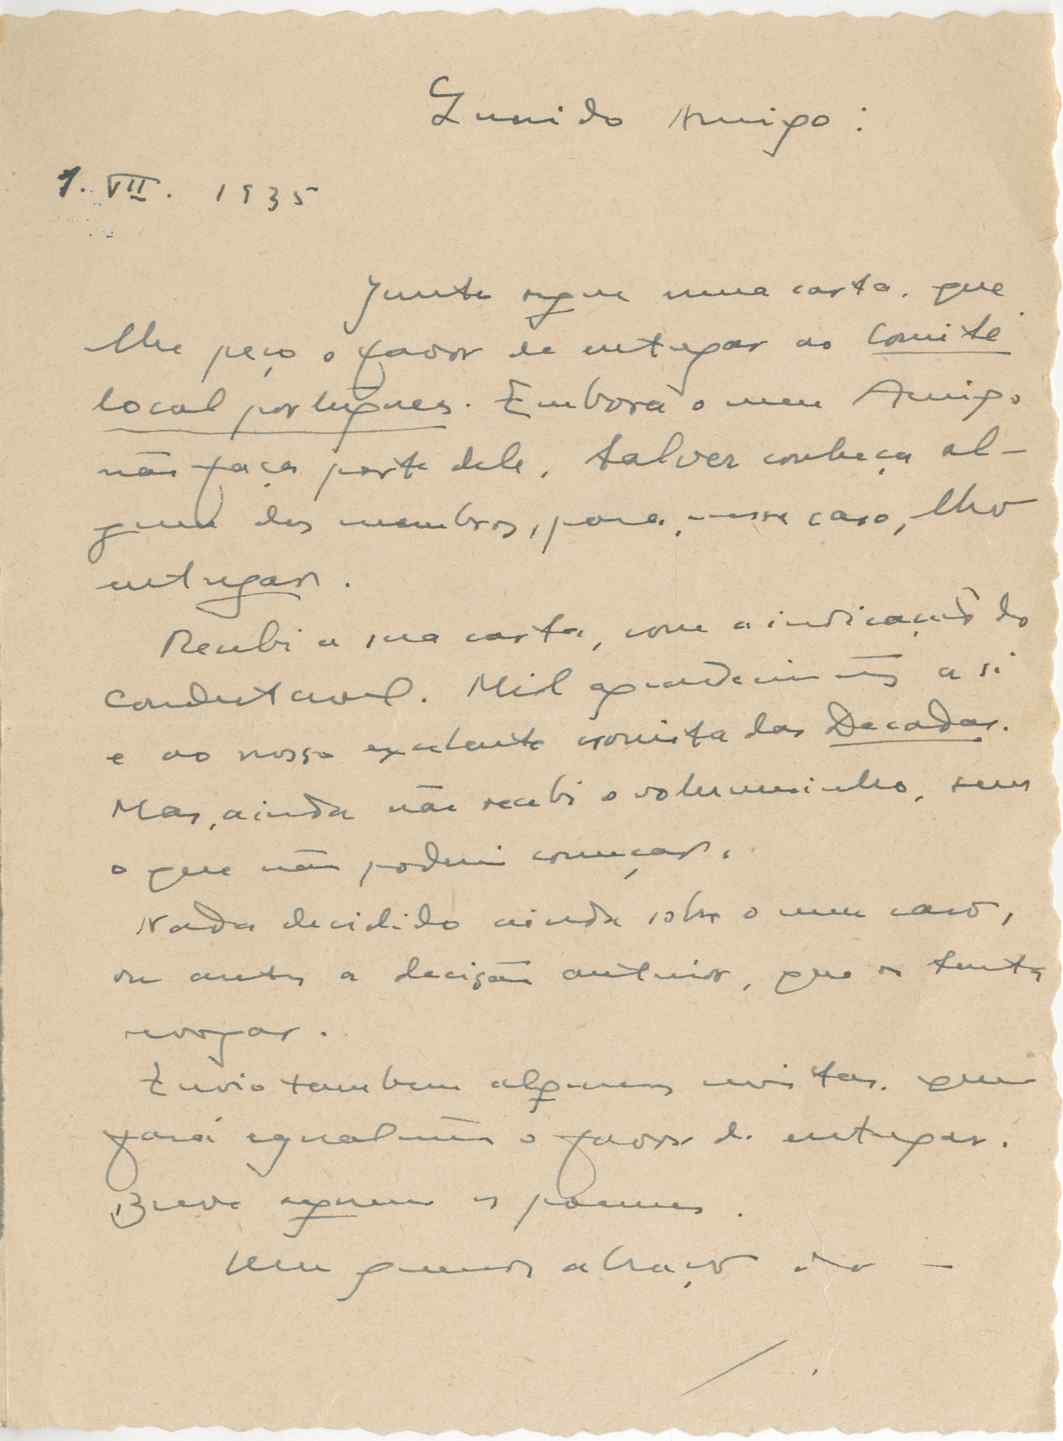 Querido Amigo:
1. VII. 1935
Junta segue uma carta, que
lhe peço o favor de entregar ao Comité
local português. Embora o meu Amigo
não faça parte dele, talvez conheça al-
gum dos membros, para, nesse caso, lho
entregar.
Recebi a sua carta, com a indicação do
Condestavel. Mil agradecimentos a si
e ao nosso excelente cronista das Decadas.
Mas, ainda não recebi o voluminho, sem
o que não poderei começar.
Nada decidido ainda sobre o meu caso,
ou antes a decisão anterior, que se tenta
revogar.
Envio tambem algumas revistas, que me
fará egualmente o favor de entregar.
Breve seguem os poemas.
Um grande abraço do